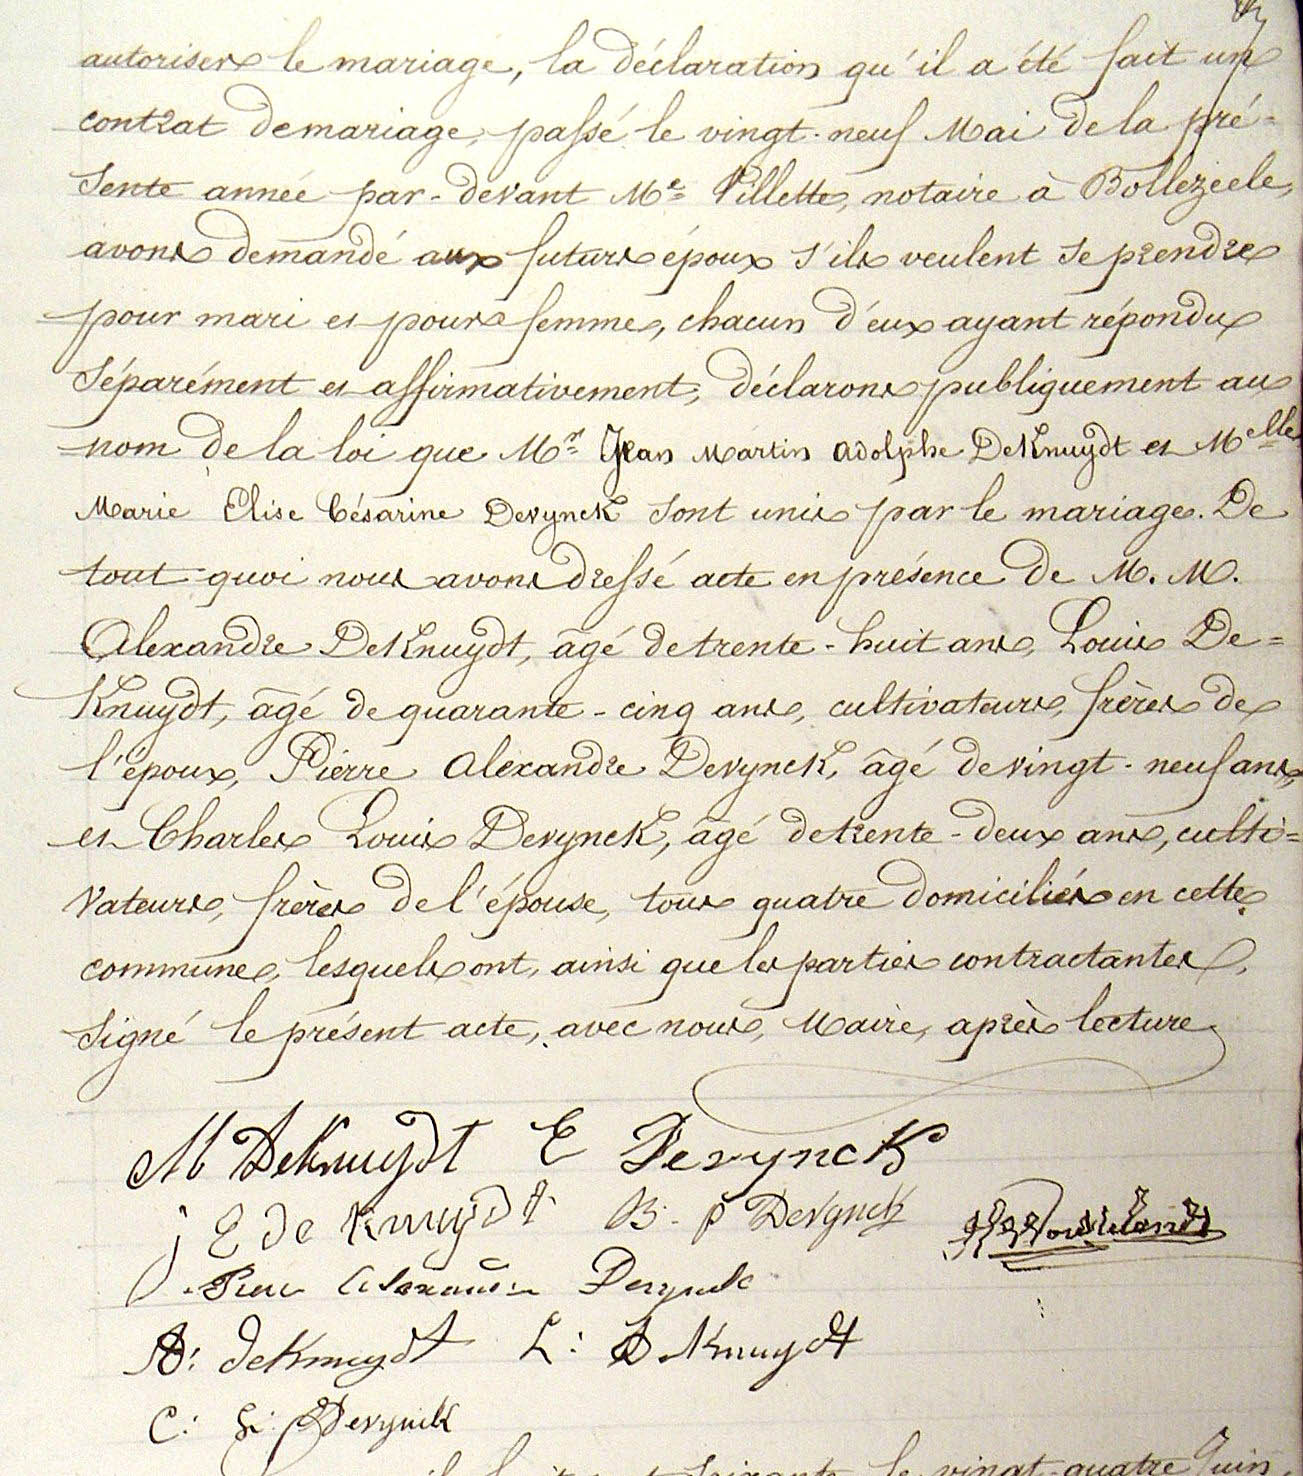 autoriser le mariage, la déclaration qu'il a été fait un
contrat de mariage, passé le vingt-neuf Mai de la pré=
sente année par-devant Me Villette, notaire à Bollezeele,
avons demandé aux futurs époux s'ils veulent se prendre
pour mari et pour femme, chacun d'eux ayant répondu
séparément et affirmativement, déclarons publiquement au
nom de la loi que Mr Jean Martin Adolphe DeKnuydt et Melle
Marie Elise Césarine Devynck sont unis par le mariage. De
tout quoi nous avons dressé acte en présence de M. M.
Alexandre DeKnuydt, âgé de trente-huit ans, Louis De=
Knuydt, âgé de quarante-cinq ans, cultivateurs, frères de
l'époux, Pierre Alexandre Devynck, âgé de vingt-neuf ans,
et Charles Louis Devynck, âgé de trente-deux ans, culti=
vateurs, frères de l'épouse, tous quatre domiciliés en cette
commune, lesquels ont, ainsi que les parties contractantes,
signé le présent acte, avec nous, Maire, après lecture
M DeKnuydt E Devynck
j E de Knuydt B. p Devynck
Pierre Alexandre Devynck
A: deKnuydt L: DeKnuydt
C: L: Devynck
le vingt-quatre Juin